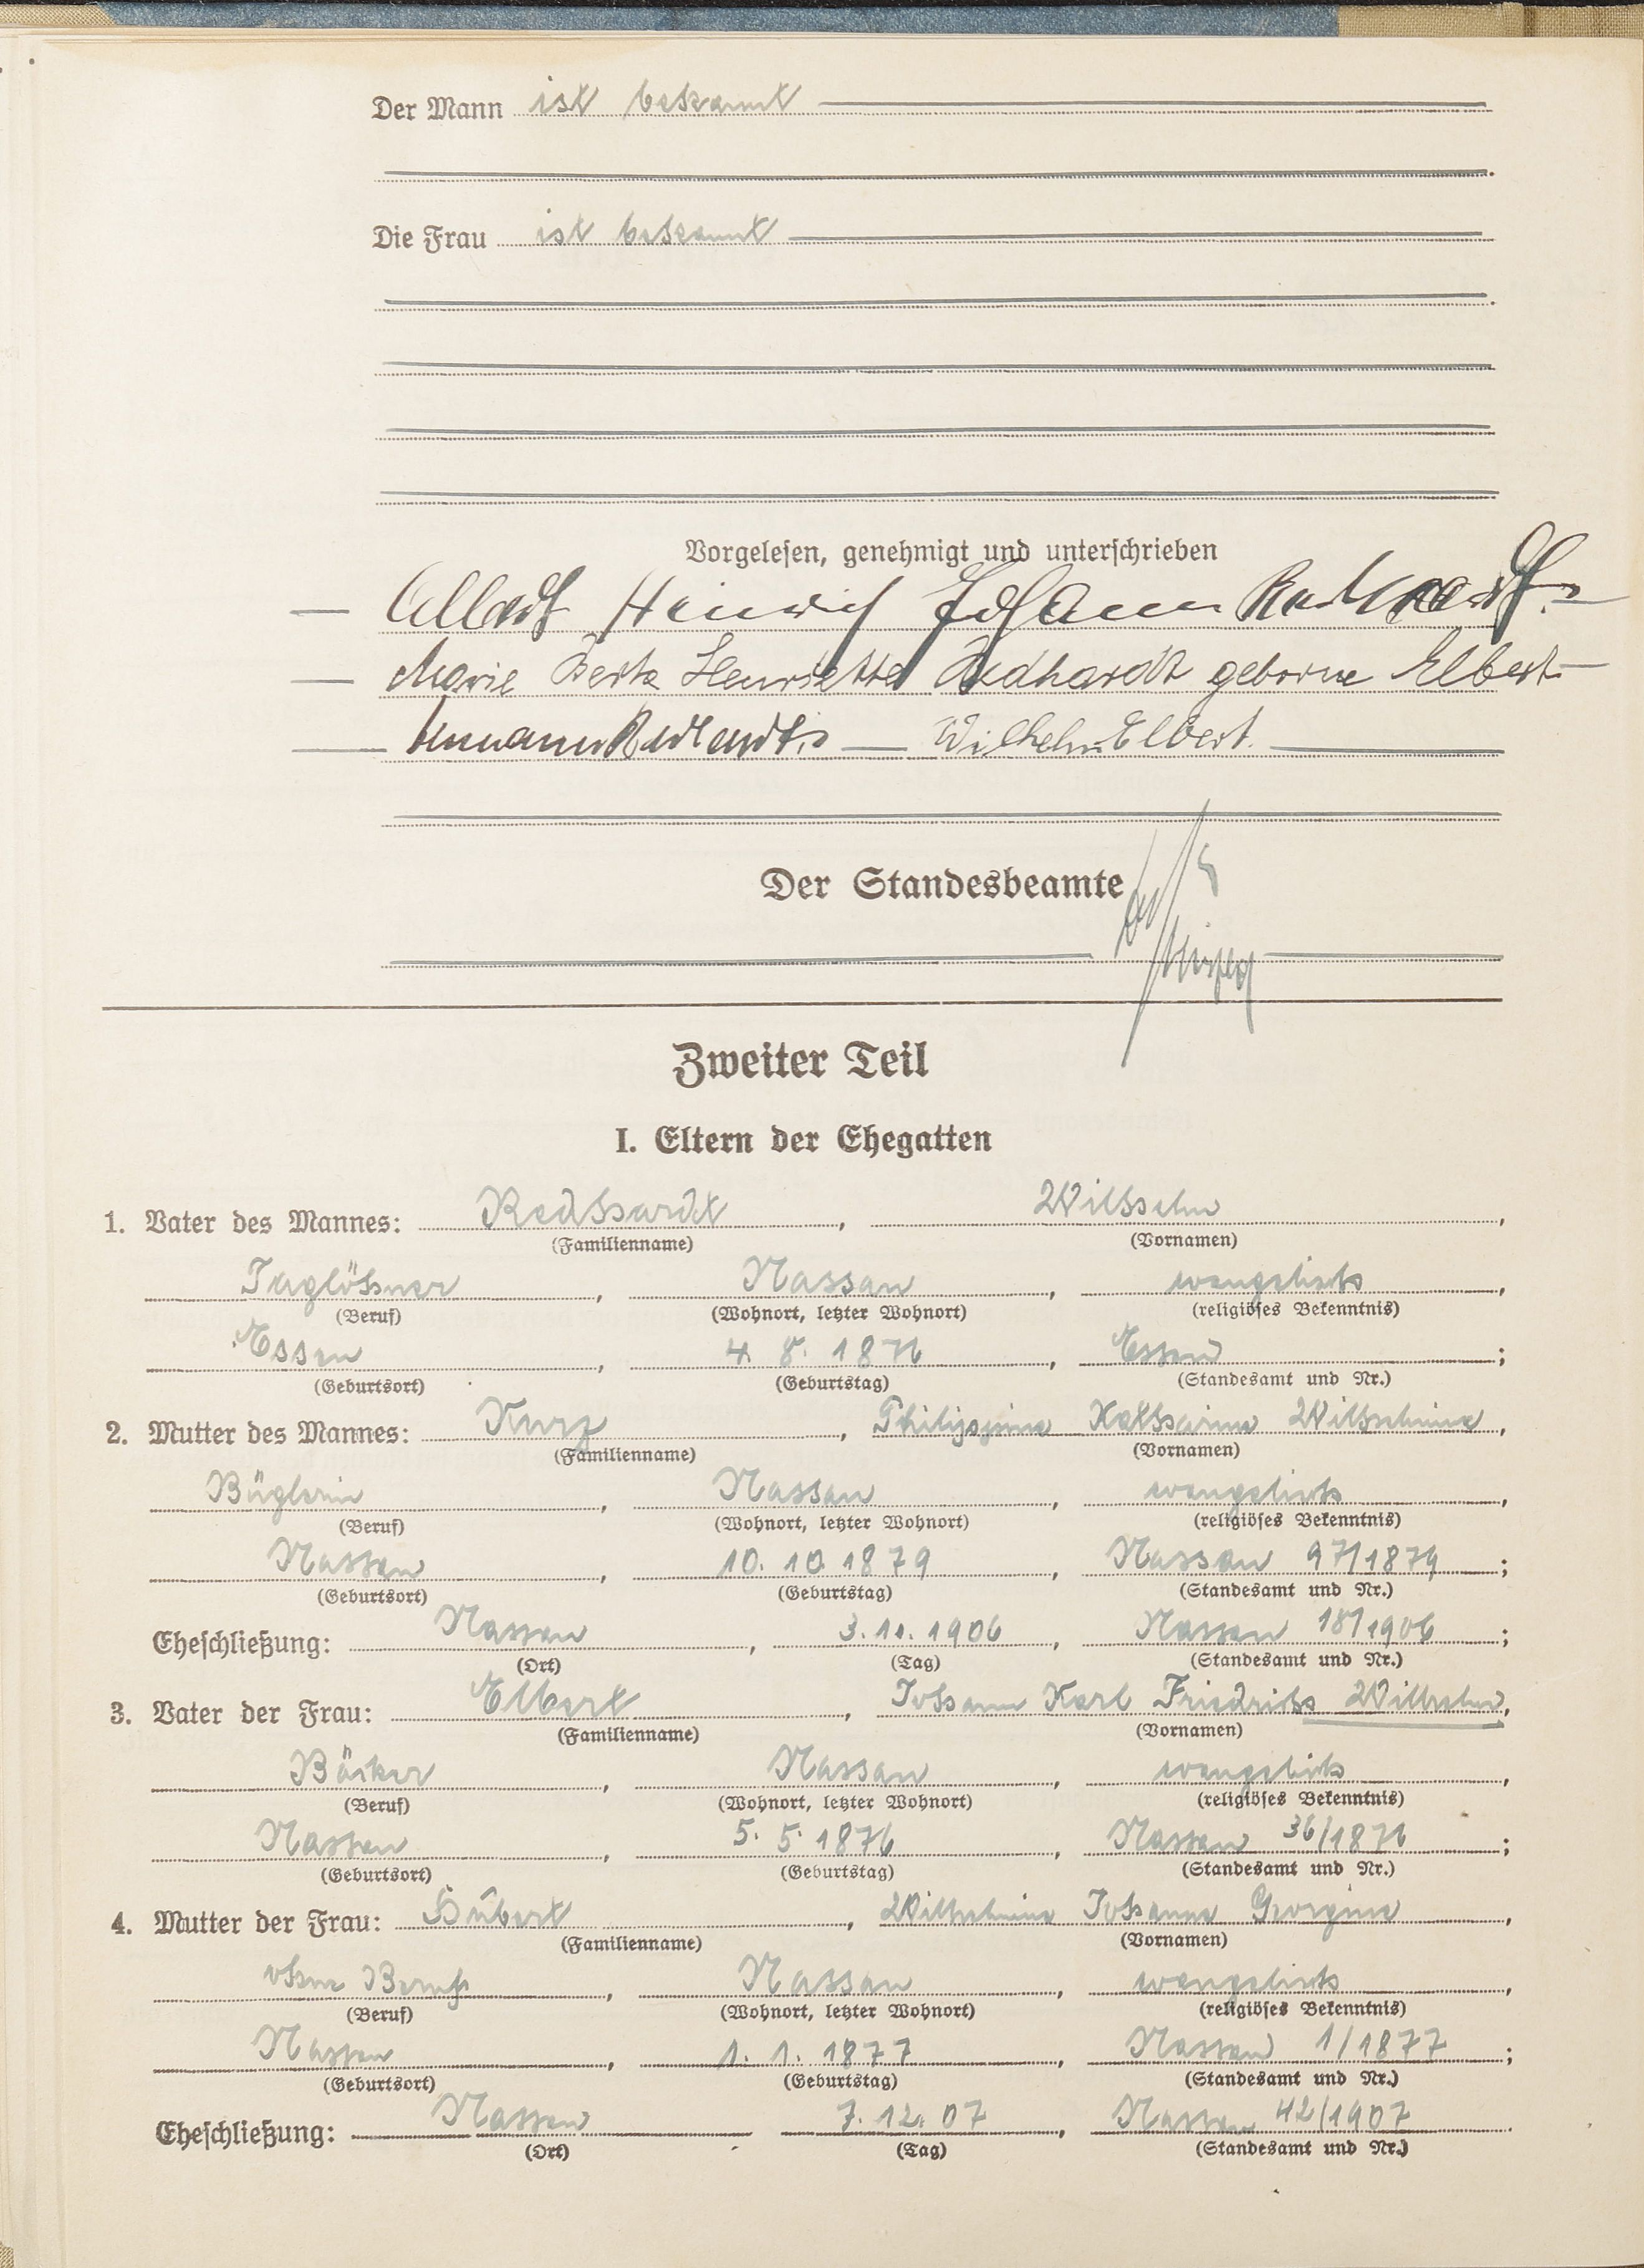 Der Mann ist bekannt
Die Frau ist bekannt
Vorgelesen, genehmigt und unterschrieben
Albert Heinrich Johann Redhardt
Marie Berta Henriette Redhardt geborne Elbert
Redhardt Wilhelm Elbert
Der Standesbeamte
Zweiter Teil
I. Eltern der Ehegatten
1. Vater des Mannes: Redhardt, Wilhelm,
(Familienname) (Vornamen)
Taglöhner, Nassau, evangelisch,
(Beruf) (Wohnort, letzter Wohnort) (religiöses Bekenntnis)
Essen, 4. 8. 1876, Essen;
(Geburtsort) (Geburtstag) (Standesamt und Nr.)
2. Mutter des Mannes: Kurz, Philippine Katharina Wilhelmine,
(Familienname) (Vornamen)
Büglerin, Nassau, evangelisch,
(Beruf) (Wohnort, letzter Wohnort) (religiöses Bekenntnis)
Nassau, 10. 10. 1879, Nassau 97/1879;
(Geburtsort) (Geburtstag) (Standesamt und Nr.)
Eheschließung: Nassau, 3. 11. 1906, Nassau 18/1906;
(Ort) (Tag) (Standesamt und Nr.)
3. Vater der Frau: Elbert, Johann Karl Friedrich Wilhelm,
(Familienname) (Vornamen)
Bäcker, Nassau, evangelisch,
(Beruf) (Wohnort, letzter Wohnort) (religiöses Bekenntnis)
Nassau, 5. 5. 1876, Nassau 36/1876;
(Geburtsort) (Geburtstag) (Standesamt und Nr.)
4. Mutter der Frau: Hubert, Wilhelmine Johanna Georgine,
(Familienname) (Vornamen)
ohne Beruf, Nassau, evangelisch,
(Beruf) (Wohnort, letzter Wohnort) (religiöses Bekenntnis)
Nassau, 1. 1. 1877, Nassau 1/1877;
(Geburtsort) (Geburtstag) (Standesamt und Nr.)
Eheschließung: Nassau 7. 12. 07, Nassau 42/1907.
(Ort) (Tag) (Standesamt und Nr.)